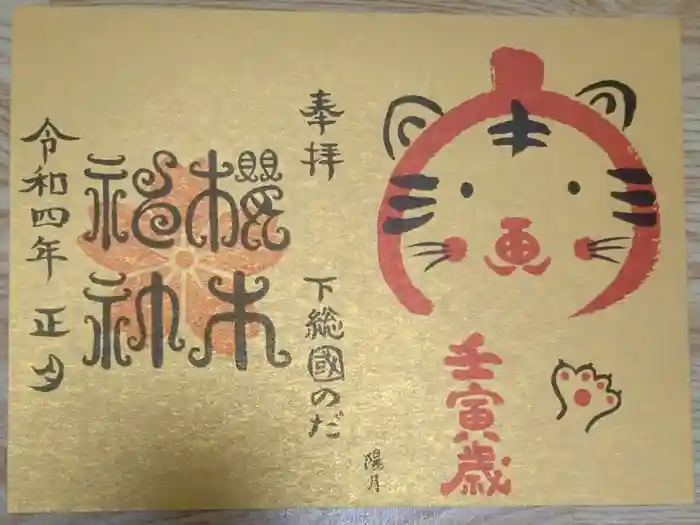 寅
壬寅歳
陽月
奉拝
下総國のだ
櫻木
神社
令和四年 正月